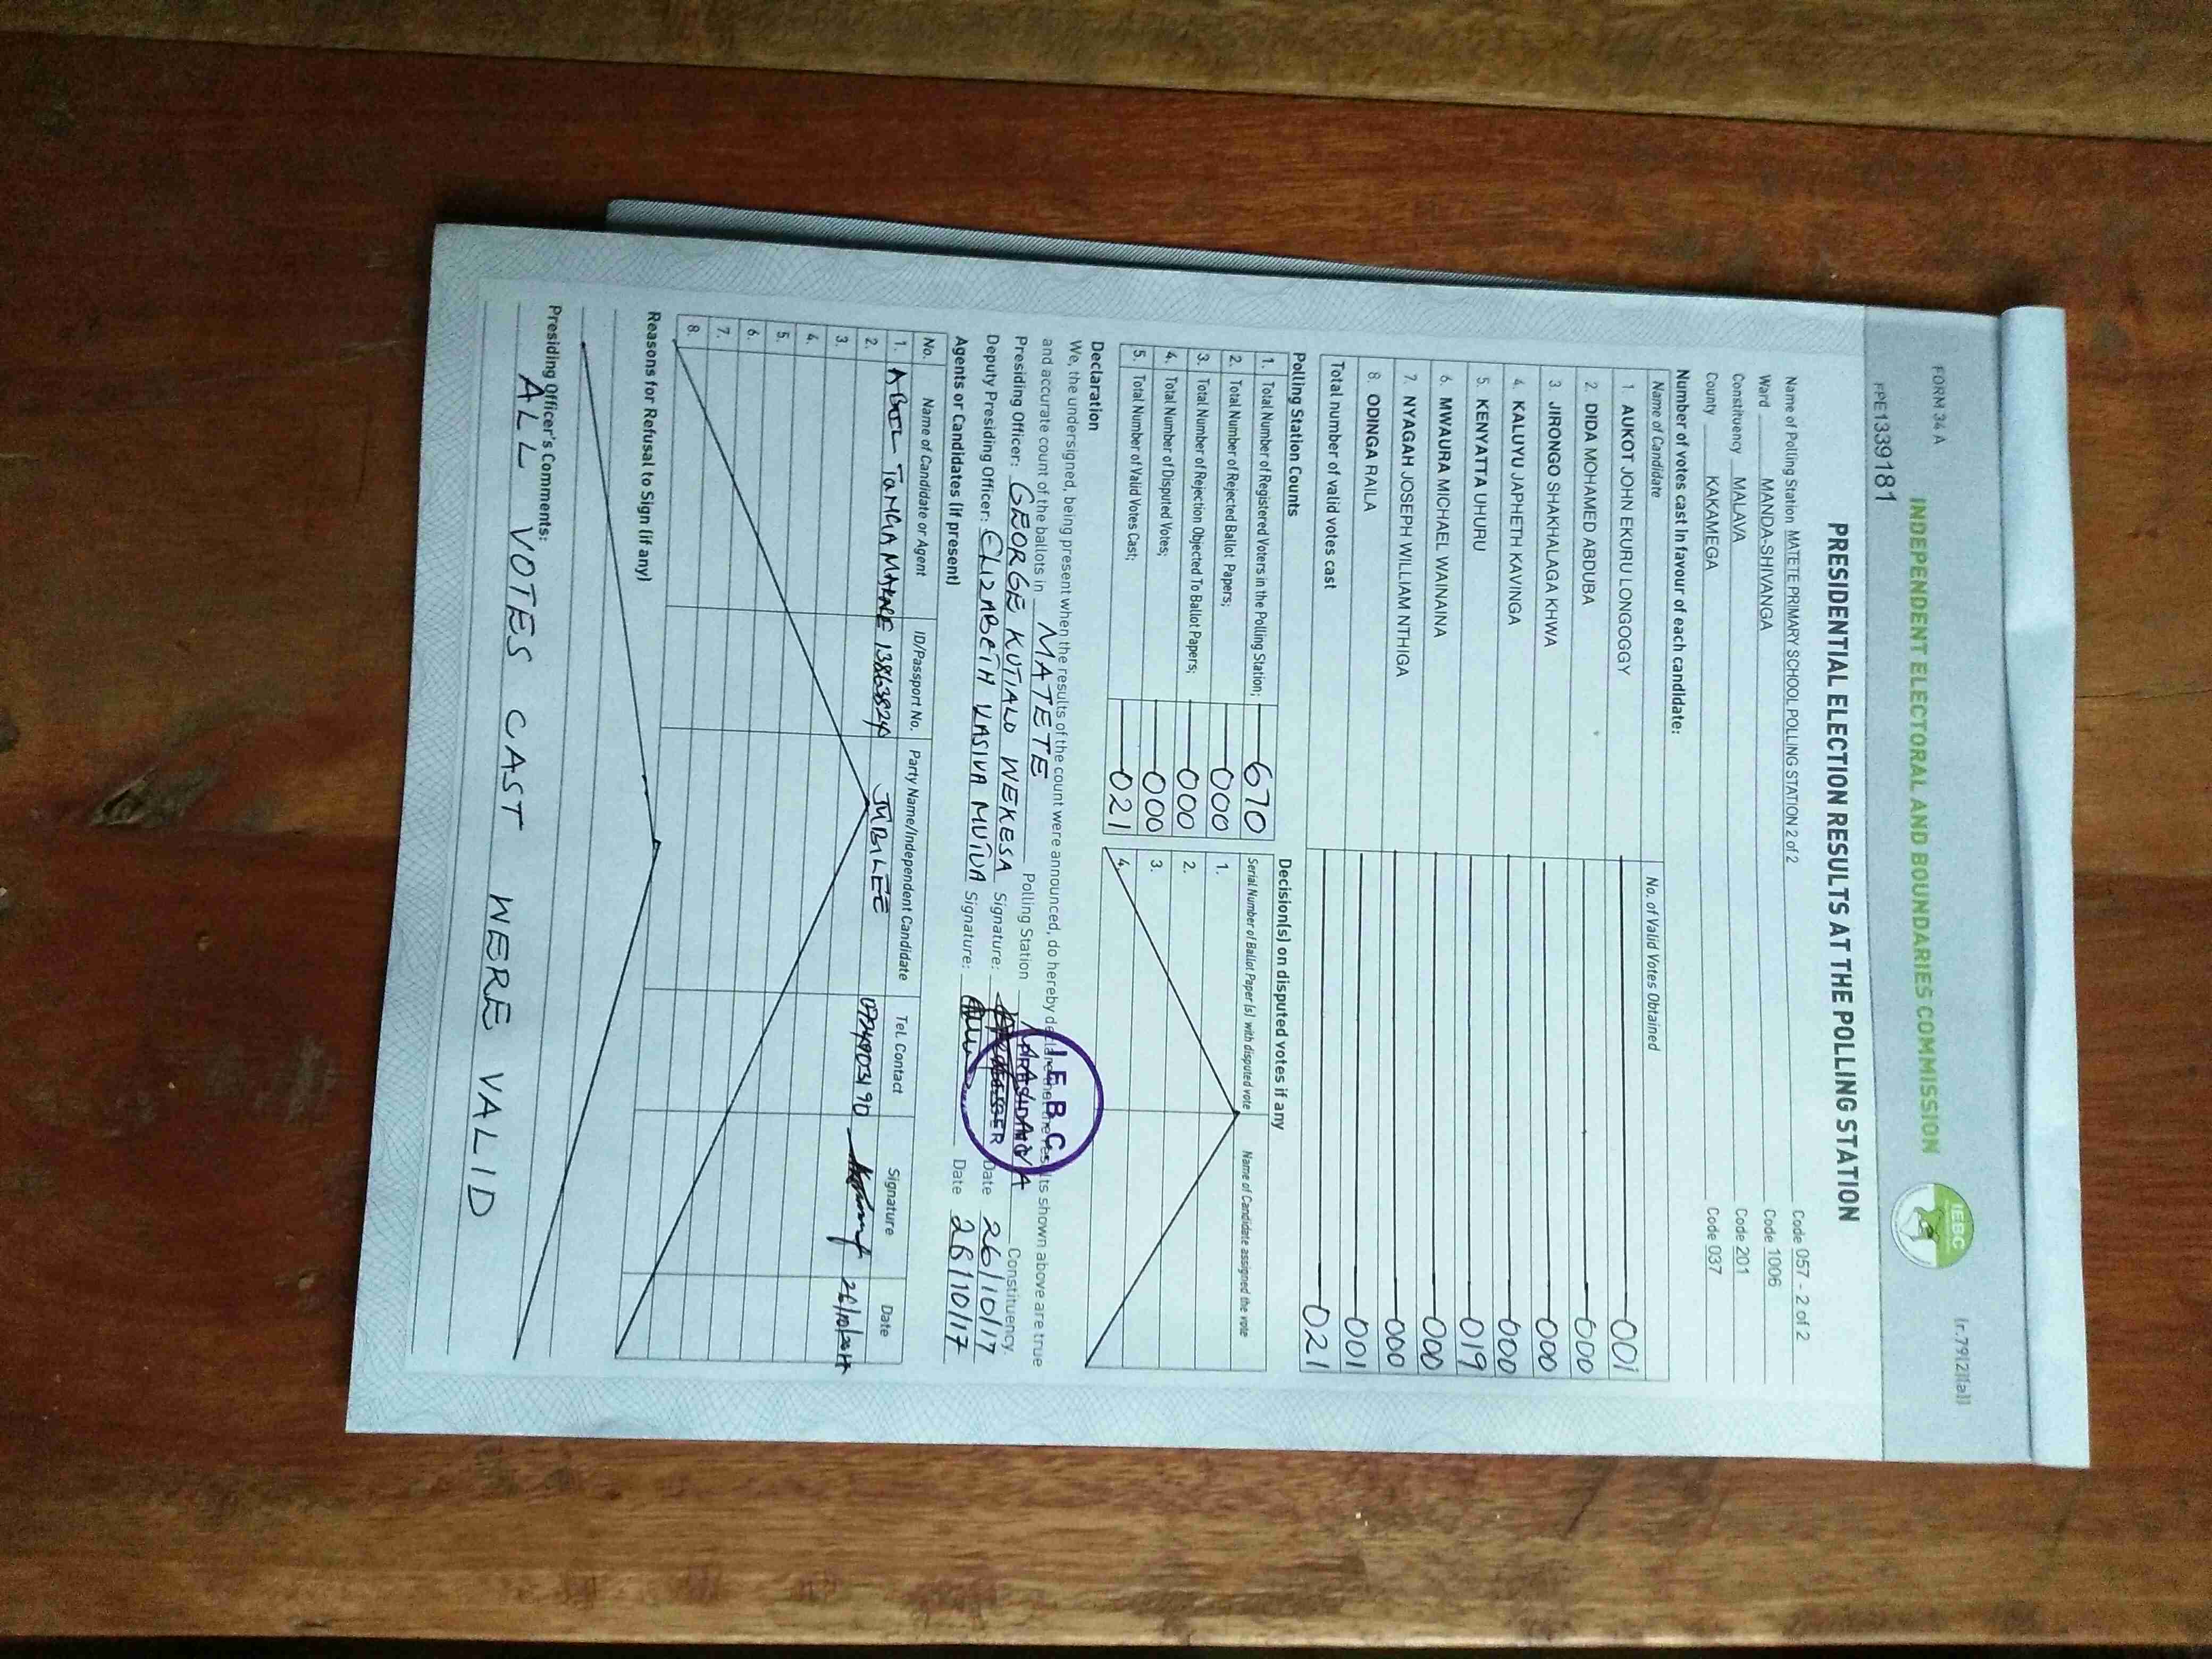 FORM 34 A
(r.79(2)(a))
INDEPENDENT ELECTORAL AND BOUNDARIES COMMISSION
IEBC
FPE1339181
PRESIDENTIAL ELECTION RESULTS AT THE POLLING STATION
Name of Polling Station MATETE PRIMARY SCHOOL POLLING STATION 2 of 2 Code 057 - 2 of 2
Ward MANDA-SHIVANGA Code 1006
Constituency MALAVA Code 201
County KAKAMEGA Code 037
Number of votes cast in favour of each candidate:
Name of Candidate No. of Valid Votes Obtained
1. AUKOT JOHN EKURU LONGOGGY 001
2. DIDA MOHAMED ABDUBA 000
3. JIRONGO SHAKHALAGA KHWA 000
4. KALUYU JAPHETH KAVINGA 000
5. KENYATTA UHURU 019
6. MWAURA MICHAEL WAINAINA 000
7. NYAGAH JOSEPH WILLIAM NTHIGA 000
8. ODINGA RAILA 001
Total number of valid votes cast 021
Polling Station Counts
1. Total Number of Registered Voters in the Polling Station; 670
2. Total Number of Rejected Ballot Papers; 000
3. Total Number of Rejection Objected To Ballot Papers; 000
4. Total Number of Disputed Votes; 000
5. Total Number of Valid Votes Cast; 021
Decision(s) on disputed votes if any
Serial Number of Ballot Paper (s) with disputed vote Name of Candidate assigned the vote
1.
2.
3.
4.
Declaration
We, the undersigned, being present when the results of the count were announced, do hereby declare that the results shown above are true
and accurate count of the ballots in MATETE Polling Station Constituency.
Presiding Officer: GEORGE KUTIALO WEKESA Signature: Date 26/10/17
Deputy Presiding Officer: ELIZABETH KASIVA MUTUA Signature: Date 26/10/17
IEBC
Agents or Candidates (if present)
No. Name of Candidate or Agent ID/Passport No. Party Name/Independent Candidate Tel. Contact Signature Date
1. JUBILEE 0724903190 26/10/2017
2.
3.
4.
5.
6.
7.
8.
Reasons for Refusal to Sign (if any)
Presiding Officer's Comments:
ALL VOTES CAST WERE VALID